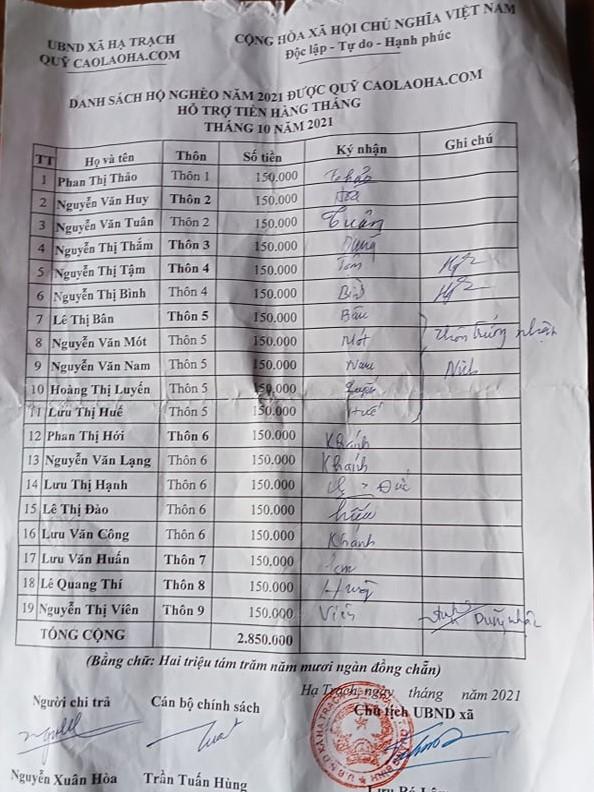 UBND XÃ HẠ TRẠCH
QUỸ CAOLAOHA.COM
CỘNG HÒA XÃ HỘI CHỦ NGHĨA VIỆT NAM
Độc lập - Tự do - Hạnh phúc
DANH SÁCH HỘ NGHÈO NĂM 2021 ĐƯỢC QUỸ CAOLAOHA.COM
HỖ TRỢ TIỀN HÀNG THÁNG
THÁNG 10 NĂM 2021
TT Họ và tên Thôn Số tiền Ký nhận Ghi chú
1 Phan Thị Thảo Thôn 1 150.000 Thảo
2 Nguyễn Văn Huy Thôn 2 150.000 Hoa
3 Nguyễn Văn Tuân Thôn 2 150.000 Tuân
4 Nguyễn Thị Thắm Thôn 3 150.000
5 Nguyễn Thị Tậm Thôn 4 150.000 Tâm
6 Nguyễn Thị Bình Thôn 4 150.000 Bình
7 Lê Thị Bân Thôn 5 150.000 Bân
8 Nguyễn Văn Mót Thôn 5 150.000 Mót Thôn trưởng nhận
9 Nguyễn Văn Nam Thôn 5 150.000 Nam
10 Hoàng Thị Luyến Thôn 5 150.000
11 Lưu Thị Huế Thôn 5 150.000 Huế
12 Phan Thị Hới Thôn 6 150.000 Khánh
13 Nguyễn Văn Lạng Thôn 6 150.000 Khánh
14 Lưu Thị Hạnh Thôn 6 150.000 Đức
15 Lê Thị Đào Thôn 6 150.000 hiếu
16 Lưu Văn Công Thôn 6 150.000 Khanh
17 Lưu Văn Huấn Thôn 7 150.000
18 Lê Quang Thí Thôn 8 150.000
19 Nguyễn Thị Viên Thôn 9 150.000 Viên
TỔNG CỘNG 2.850.000
(Bằng chữ: Hai triệu tám trăm năm mươi ngàn đồng chẵn)
Hạ Trạch, ngày tháng năm 2021
Người chi trả Cán bộ chính sách Chủ tịch UBND xã
Nguyễn Xuân Hòa Trần Tuấn Hùng